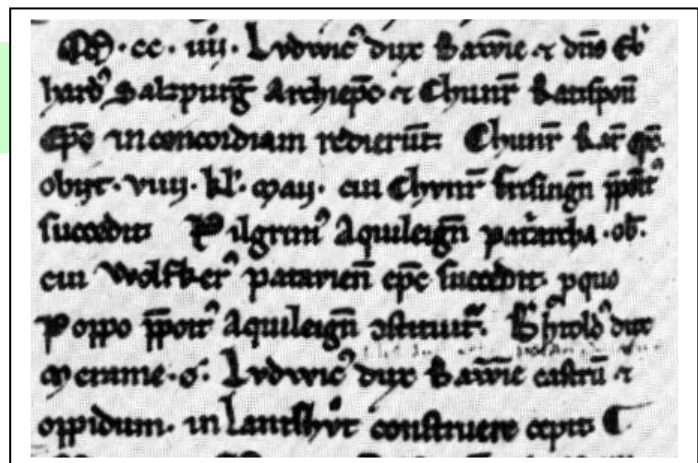 M · cc · iiij · Lvdwic' dux Bawͥie ⁊ dn̄s Eb'
hard' Salzpurḡ Archiep̄c ⁊ Chunr̄ Ratispoñ
Ep̄c in concordiam redierūt: Chunr̄ Rat̄ ep̄c
obijt · viiij · kl' · maij · cui Chvnr̄ frisingn̄ p̄poit'
succedit Pilgrim' Aquileign̄ patͥarcha · ob' ·
cui Wolfker' patavien̄ ep̄c succedit · p quo
Poppo p̄poit' Aquileign̄ ꝯstituit'. Bͥhtold' dux
Meranie · o' · Lvdwic' dux Bawͥie castrū ⁊
oppidum · in Lantshv̊t construere cepit